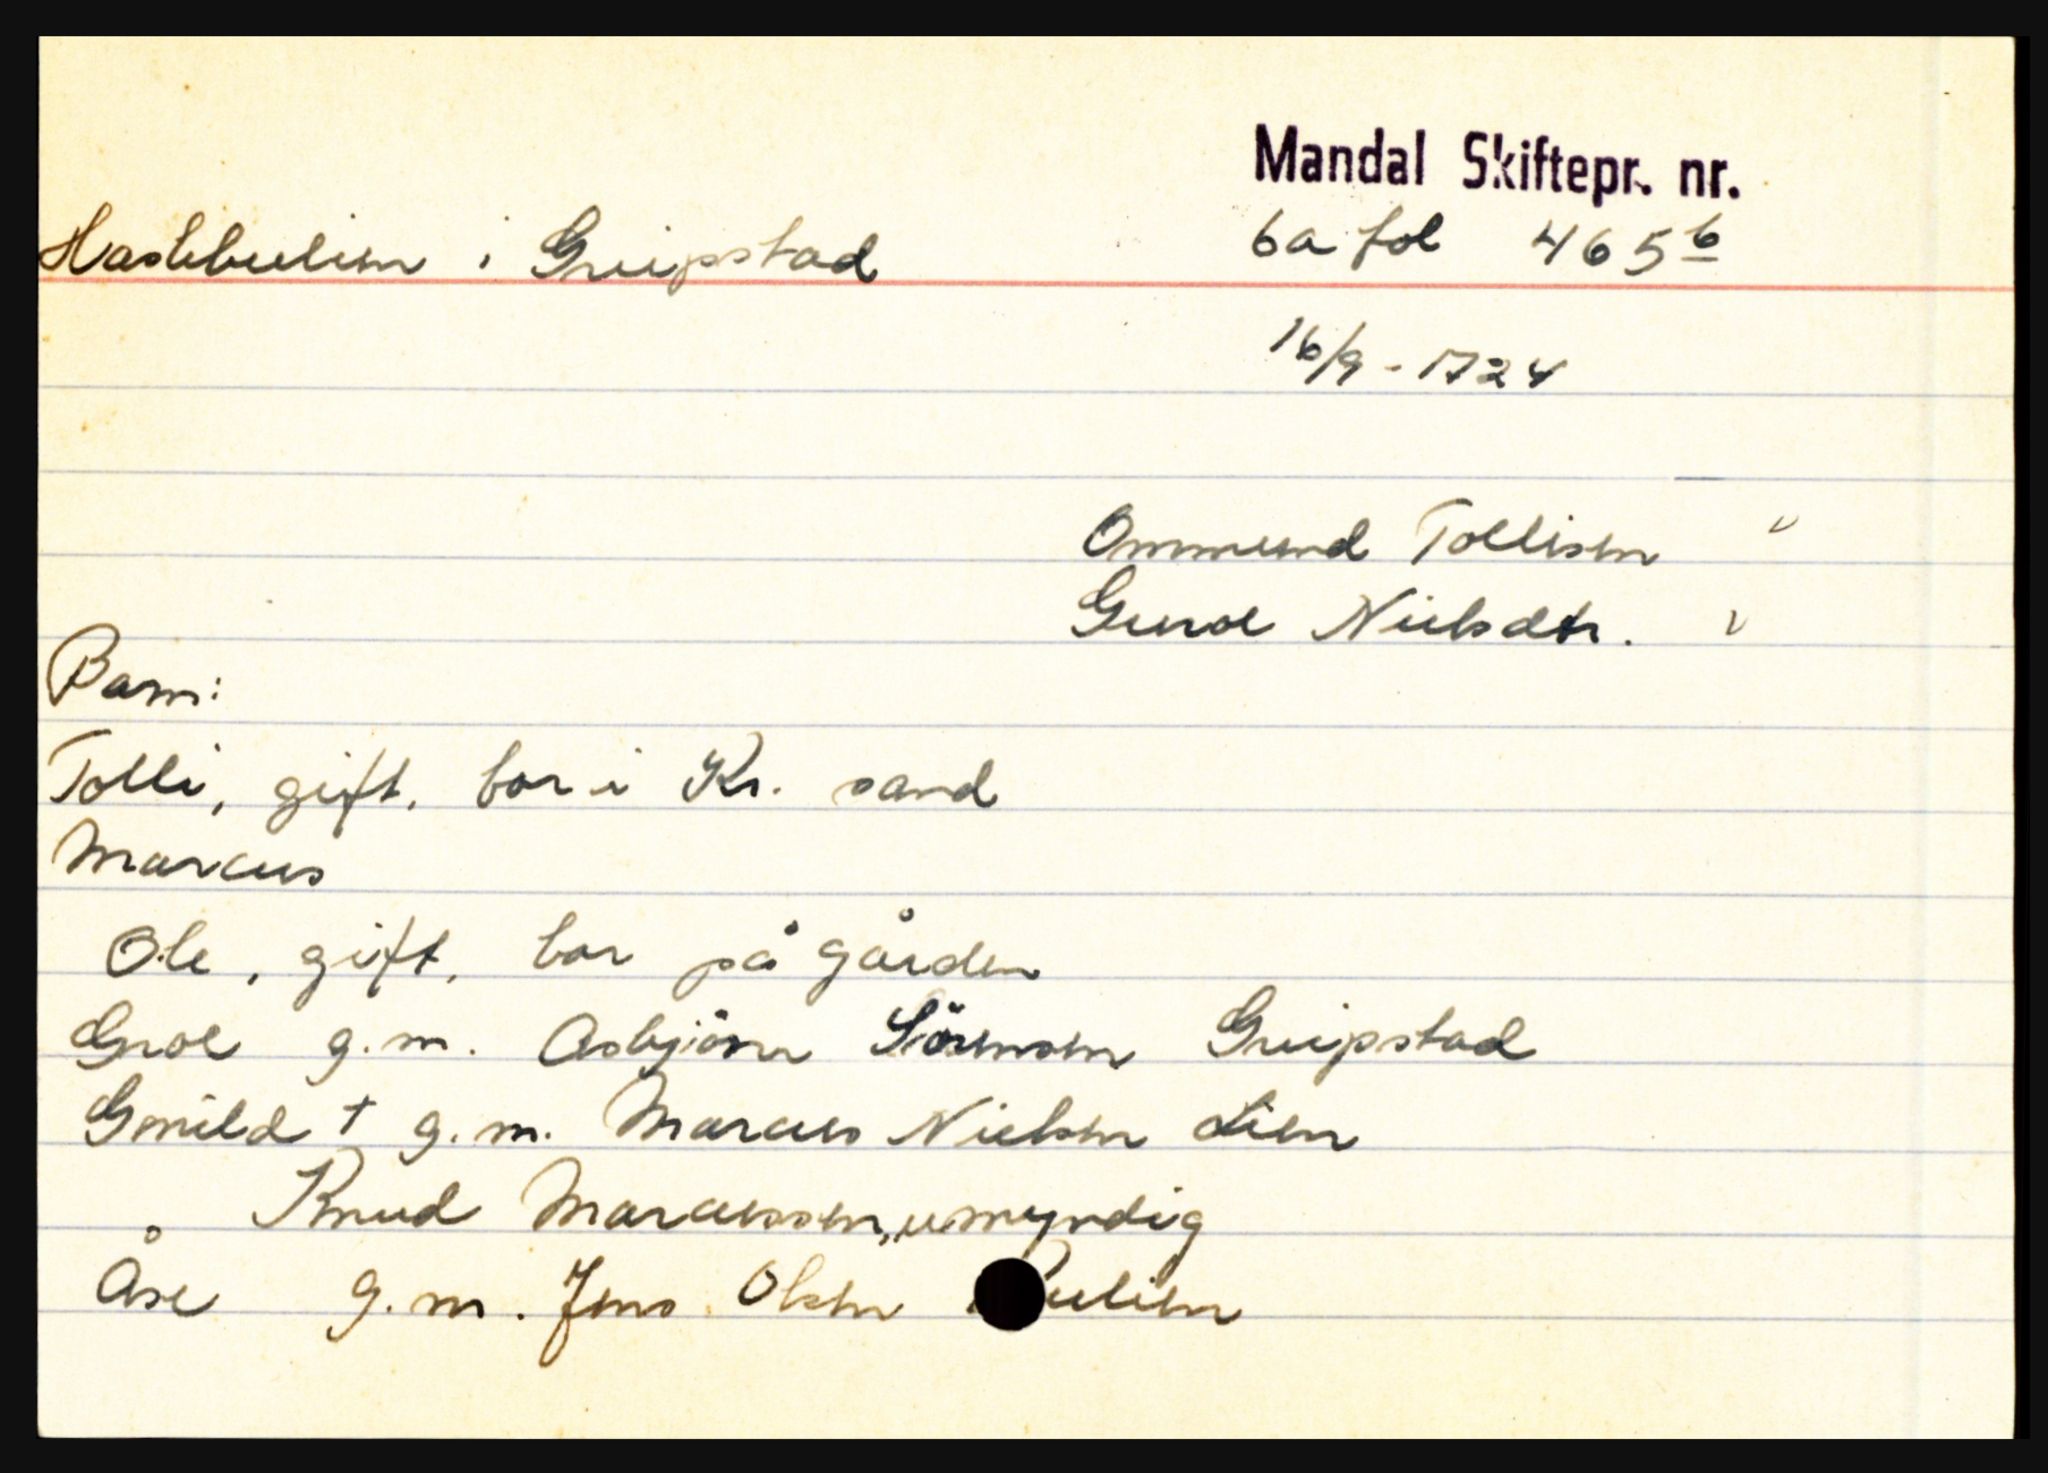 Mandal Skiftepr. nr.
Haskbulien i Greipstad 6a fol 465 b
16/9 - 1724
Ommund Tollisen v
Guroe Nielsdtr. v
Barn:
Tolli, gift, bor i Kr. sand
Marcus
Ole, gift, bor på gården
Groe g.m. Asbjörn Sörensen Greipstad
Gunild † g.m. Marcus Nielsen Lien
Knud Marcussen, umyndig
Åse g.m. Jens Olsen